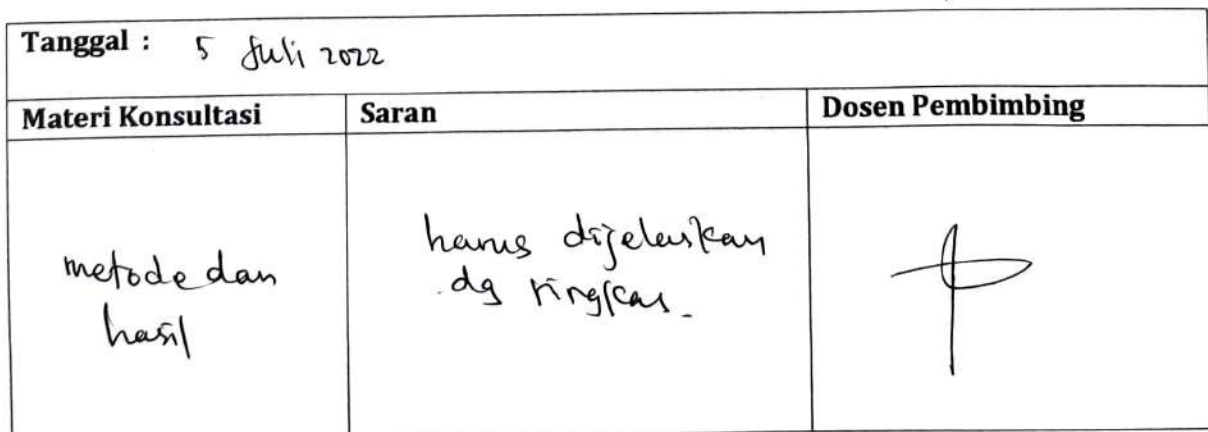 Tanggal : 5 Juli 2022
Materi Konsultasi Saran Dosen Pembimbing
metode dan
hasil
harus dijelaskan
dg ringkas.